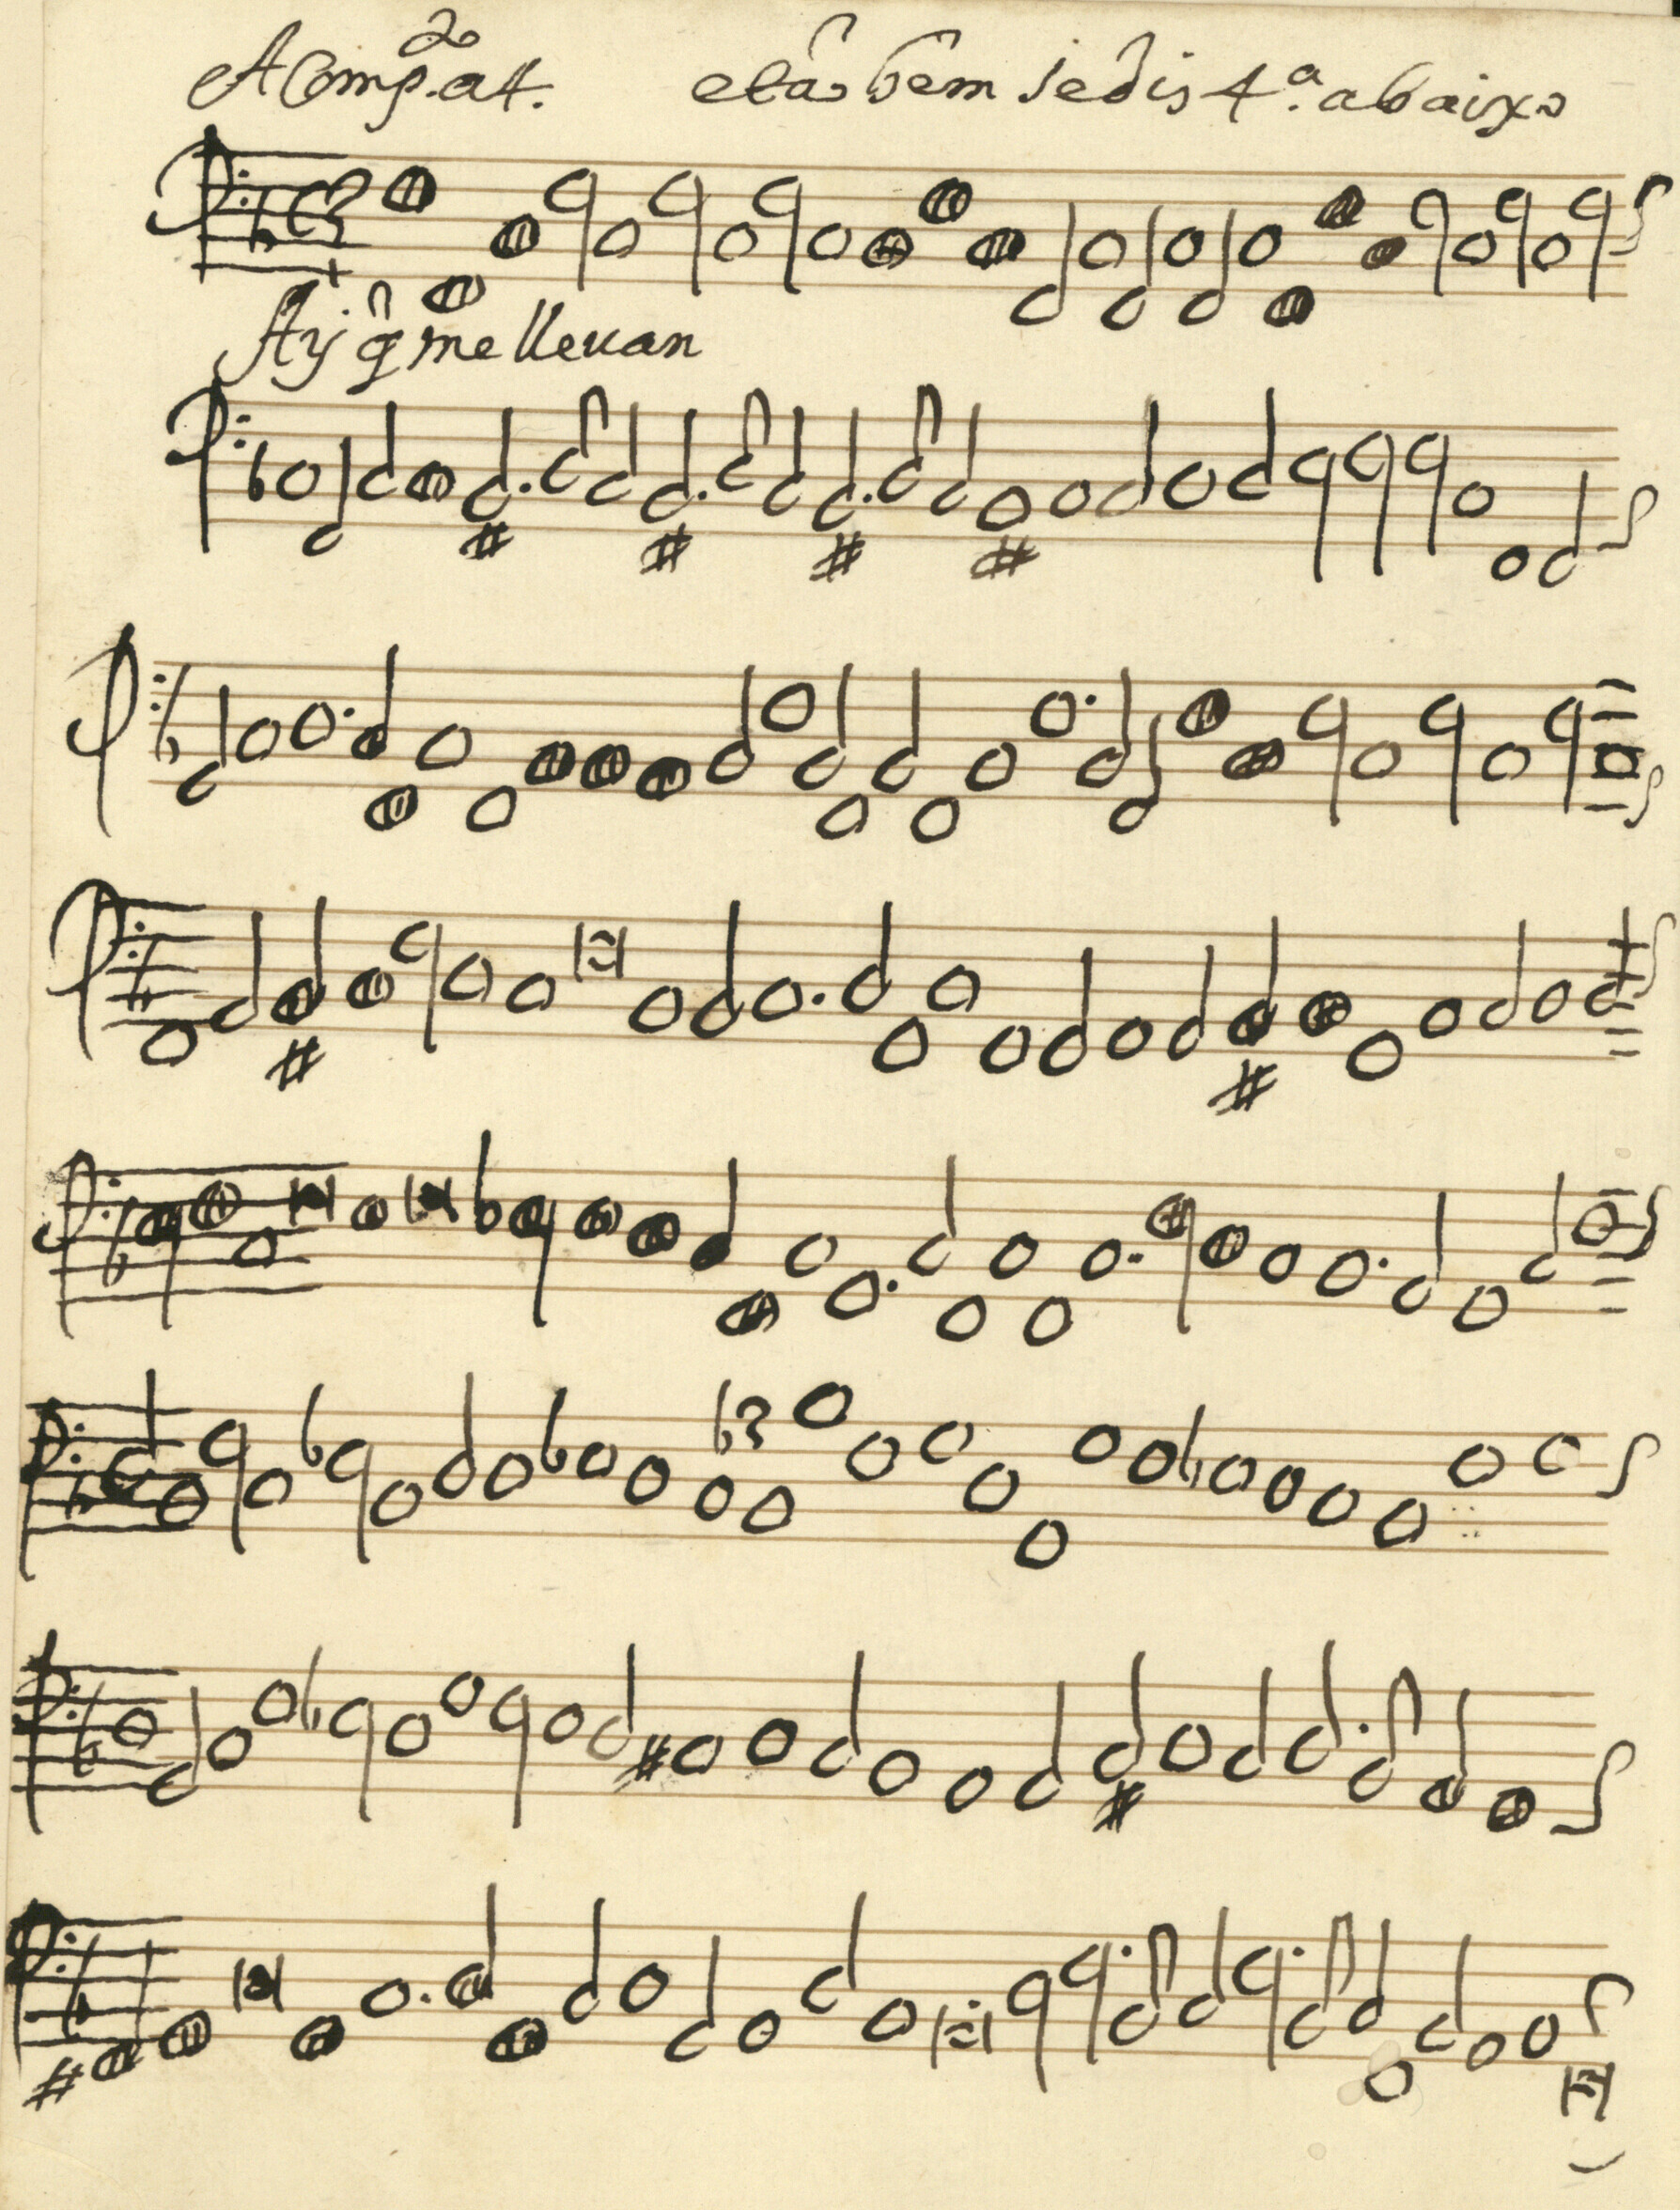 Acomp.to a 4. e tãobem se dis 4.a abaixo
Ay q̃ me lleuan